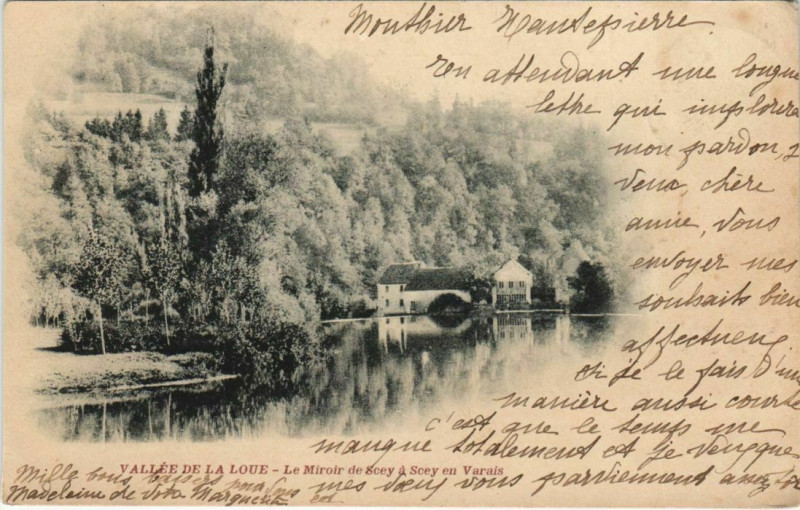 Monthier Hautepierre.
En attendant une longue
lettre qui implorera
mon pardon, je
veux, chère
amie, vous
envoyer mes
souhaits bien
affectueux.
Si je le fais d'une
manière aussi courte
c'est que le temps me
manque totalement et je veux que
mes vœux vous parviennent
Mille bons baisers pour vous
Madeleine de Marguerite
VALLÉE DE LA LOUE - Le Miroir de Scey à Scey en Varais